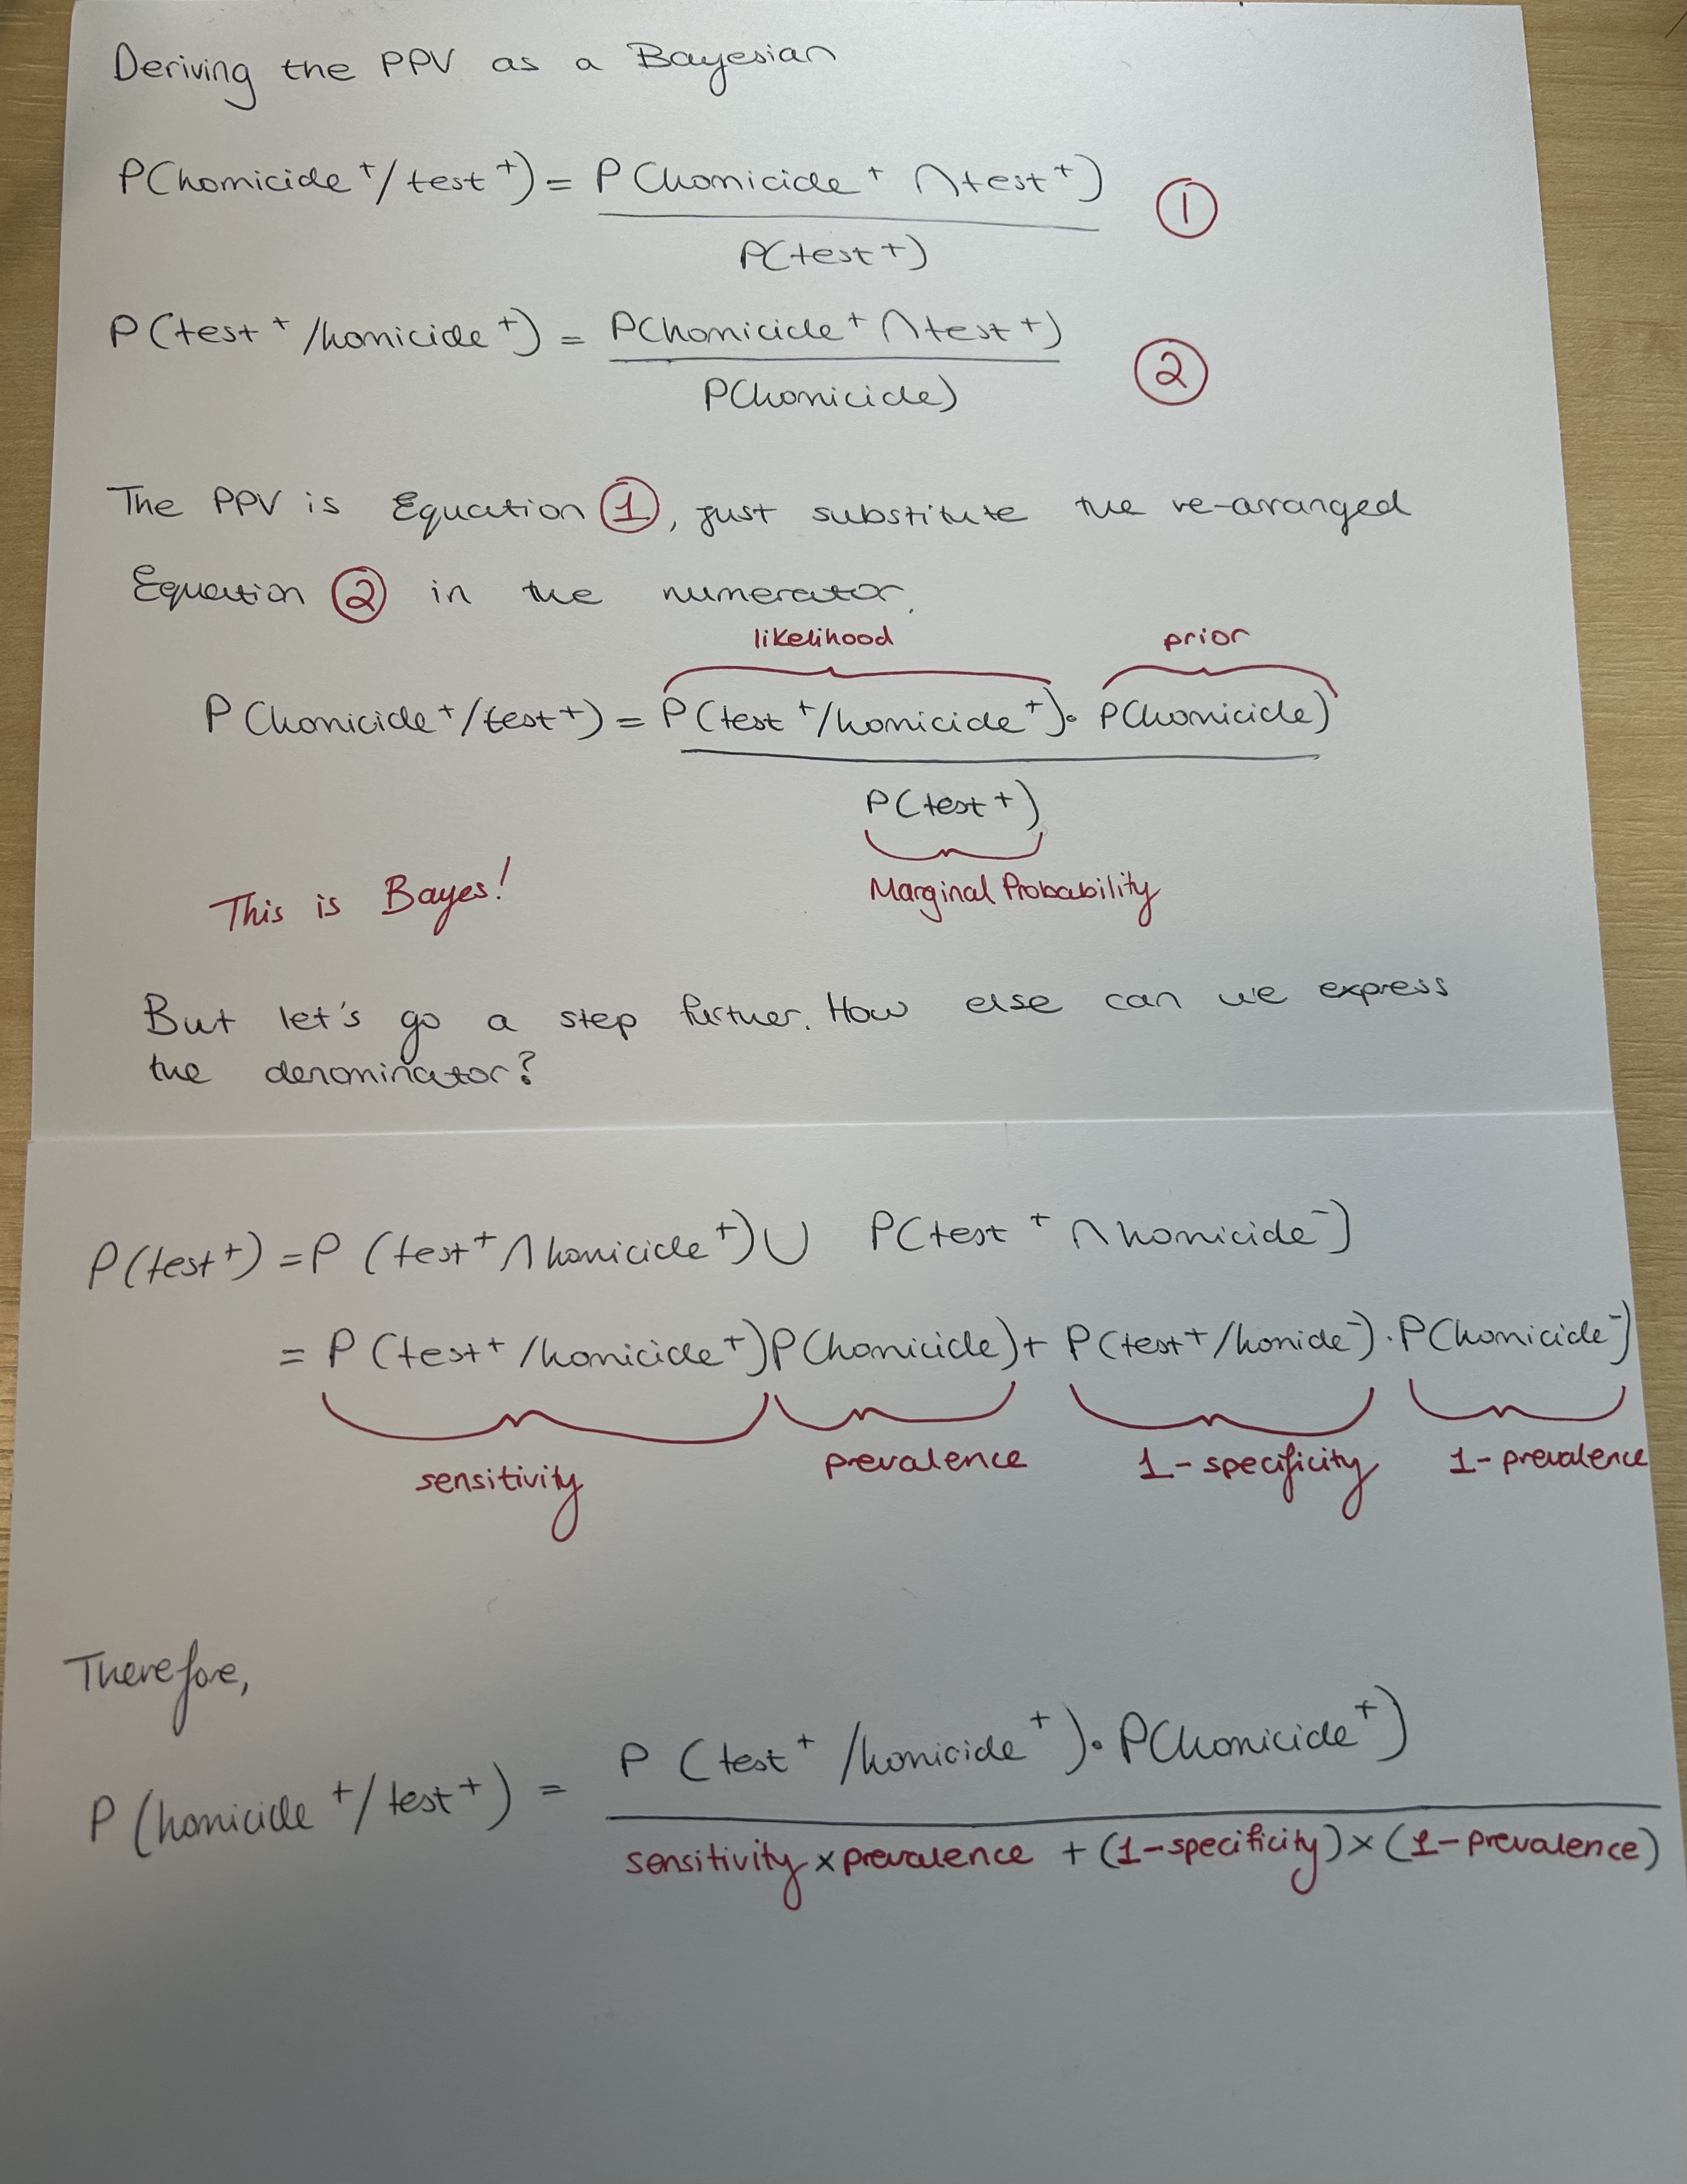 Deriving the PPV as a Bayesian
P(homicide⁺/test⁺) = P(homicide⁺ ∩ test⁺)
P(test⁺)
①
P(test⁺/homicide⁺) = P(homicide⁺ ∩ test⁺)
P(homicide)
②
The PPV is Equation ①, just substitute the re-arranged
Equation ② in the numerator.
likelihood prior
P(homicide⁺/test⁺) = P(test⁺/homicide⁺) • P(homicide)
P(test⁺)
Marginal Probability
This is Bayes!
But let's go a step further. How else can we express
the denominator?
P(test⁺) = P(test⁺ ∩ homicide⁺) ∪ P(test⁺ ∩ homicide⁻)
= P(test⁺/homicide⁺)P(homicide) + P(test⁺/homide⁻) · P(homicide⁻)
sensitivity prevalence 1-specificity 1-prevalence
Therefore,
P(homicide⁺/test⁺) = P(test⁺/homicide⁺) • P(homicide⁺)
sensitivity × prevalence + (1-specificity) × (1-prevalence)